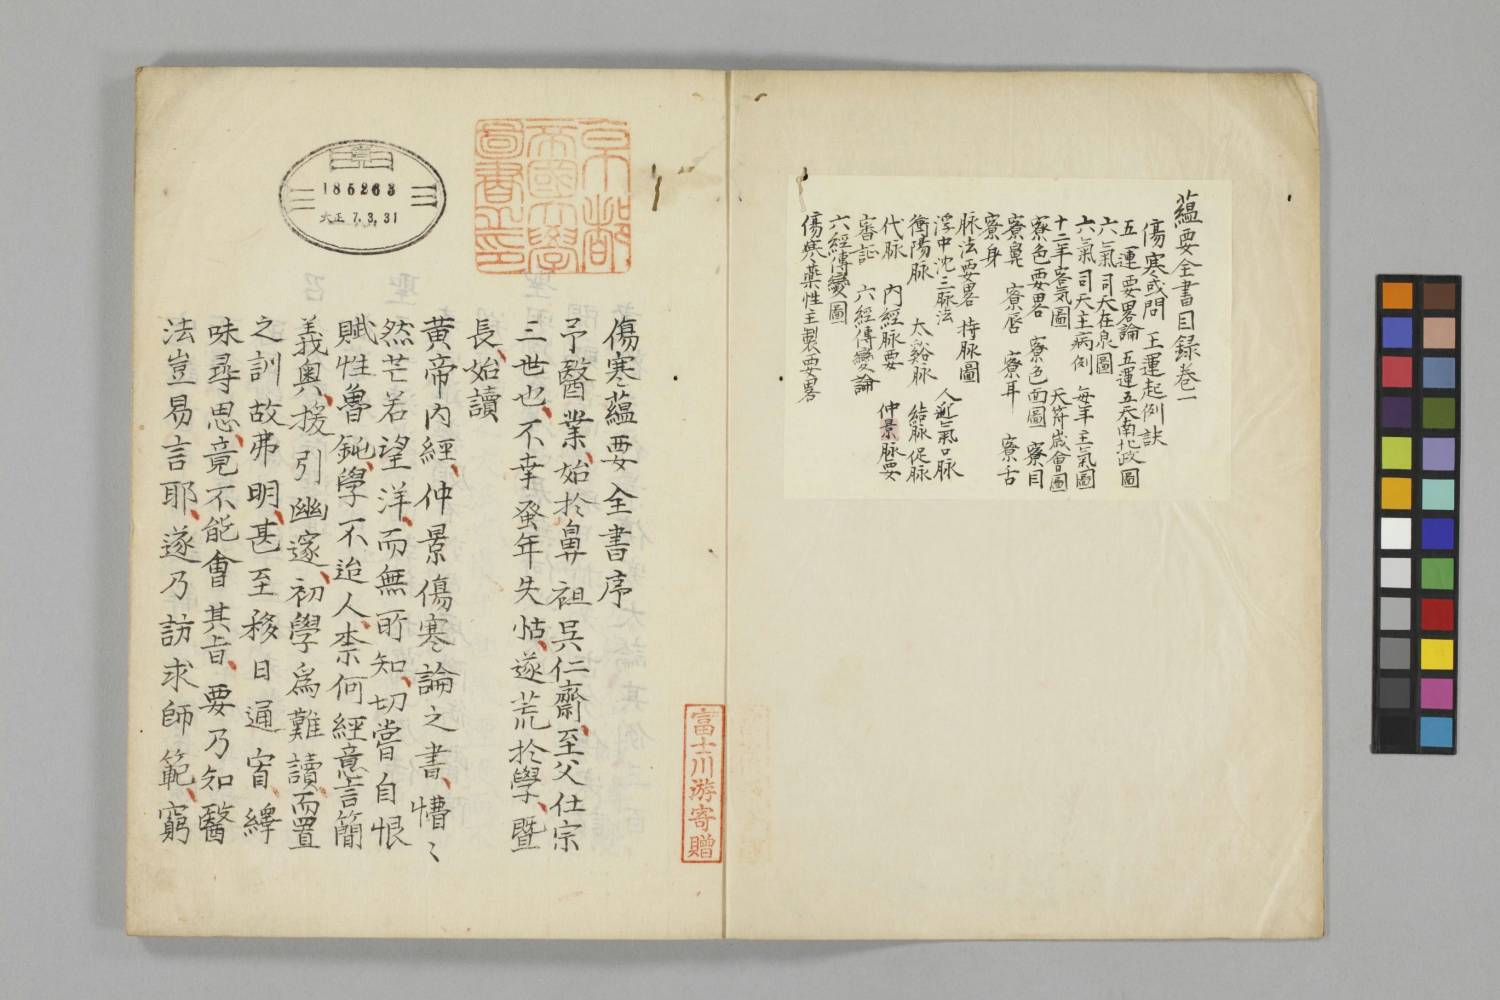 蘊要全書目録巻一
傷寒或問 五運起例訣
五運要畧論 五運五天南北政圖
六氣司天在泉圖
六氣司天主病例 每年主氣圖
十二年客氣圖 天符歳會圖
察色要畧 察色面圖 察目
察鼻 察唇 察耳 察舌
察身
脉法要畧 持脉圖
浮中沈三脉法 人迎氣口脉
衝陽脉 太谿脉 結脉促脉
代脉 内經脉要 仲景脉要
審証 六經傳變論
六經傳變圖
傷寒藥性主製要畧
富士川游寄贈
京都
帝國大學
圖書之印
185263
大正 7.3.31
傷寒蘊要全書序
予醫業、始於鼻祖吴仁齋、至父仕宗
三世也、不幸蚤年失怙、遂荒於學、曁
長、始讀
黄帝内經、仲景傷寒論之書、懵〻
然芒若望洋、而無所知、切嘗自恨
賦性魯鈍、學不迨人、柰何經意言簡
義奥、援引幽邃、初學爲難讀、而置
之訓故弗明、甚至移日通宵、繹
味尋思、竟不能會其旨、要乃知醫
法豈易言耶、遂乃訪求師範、窮